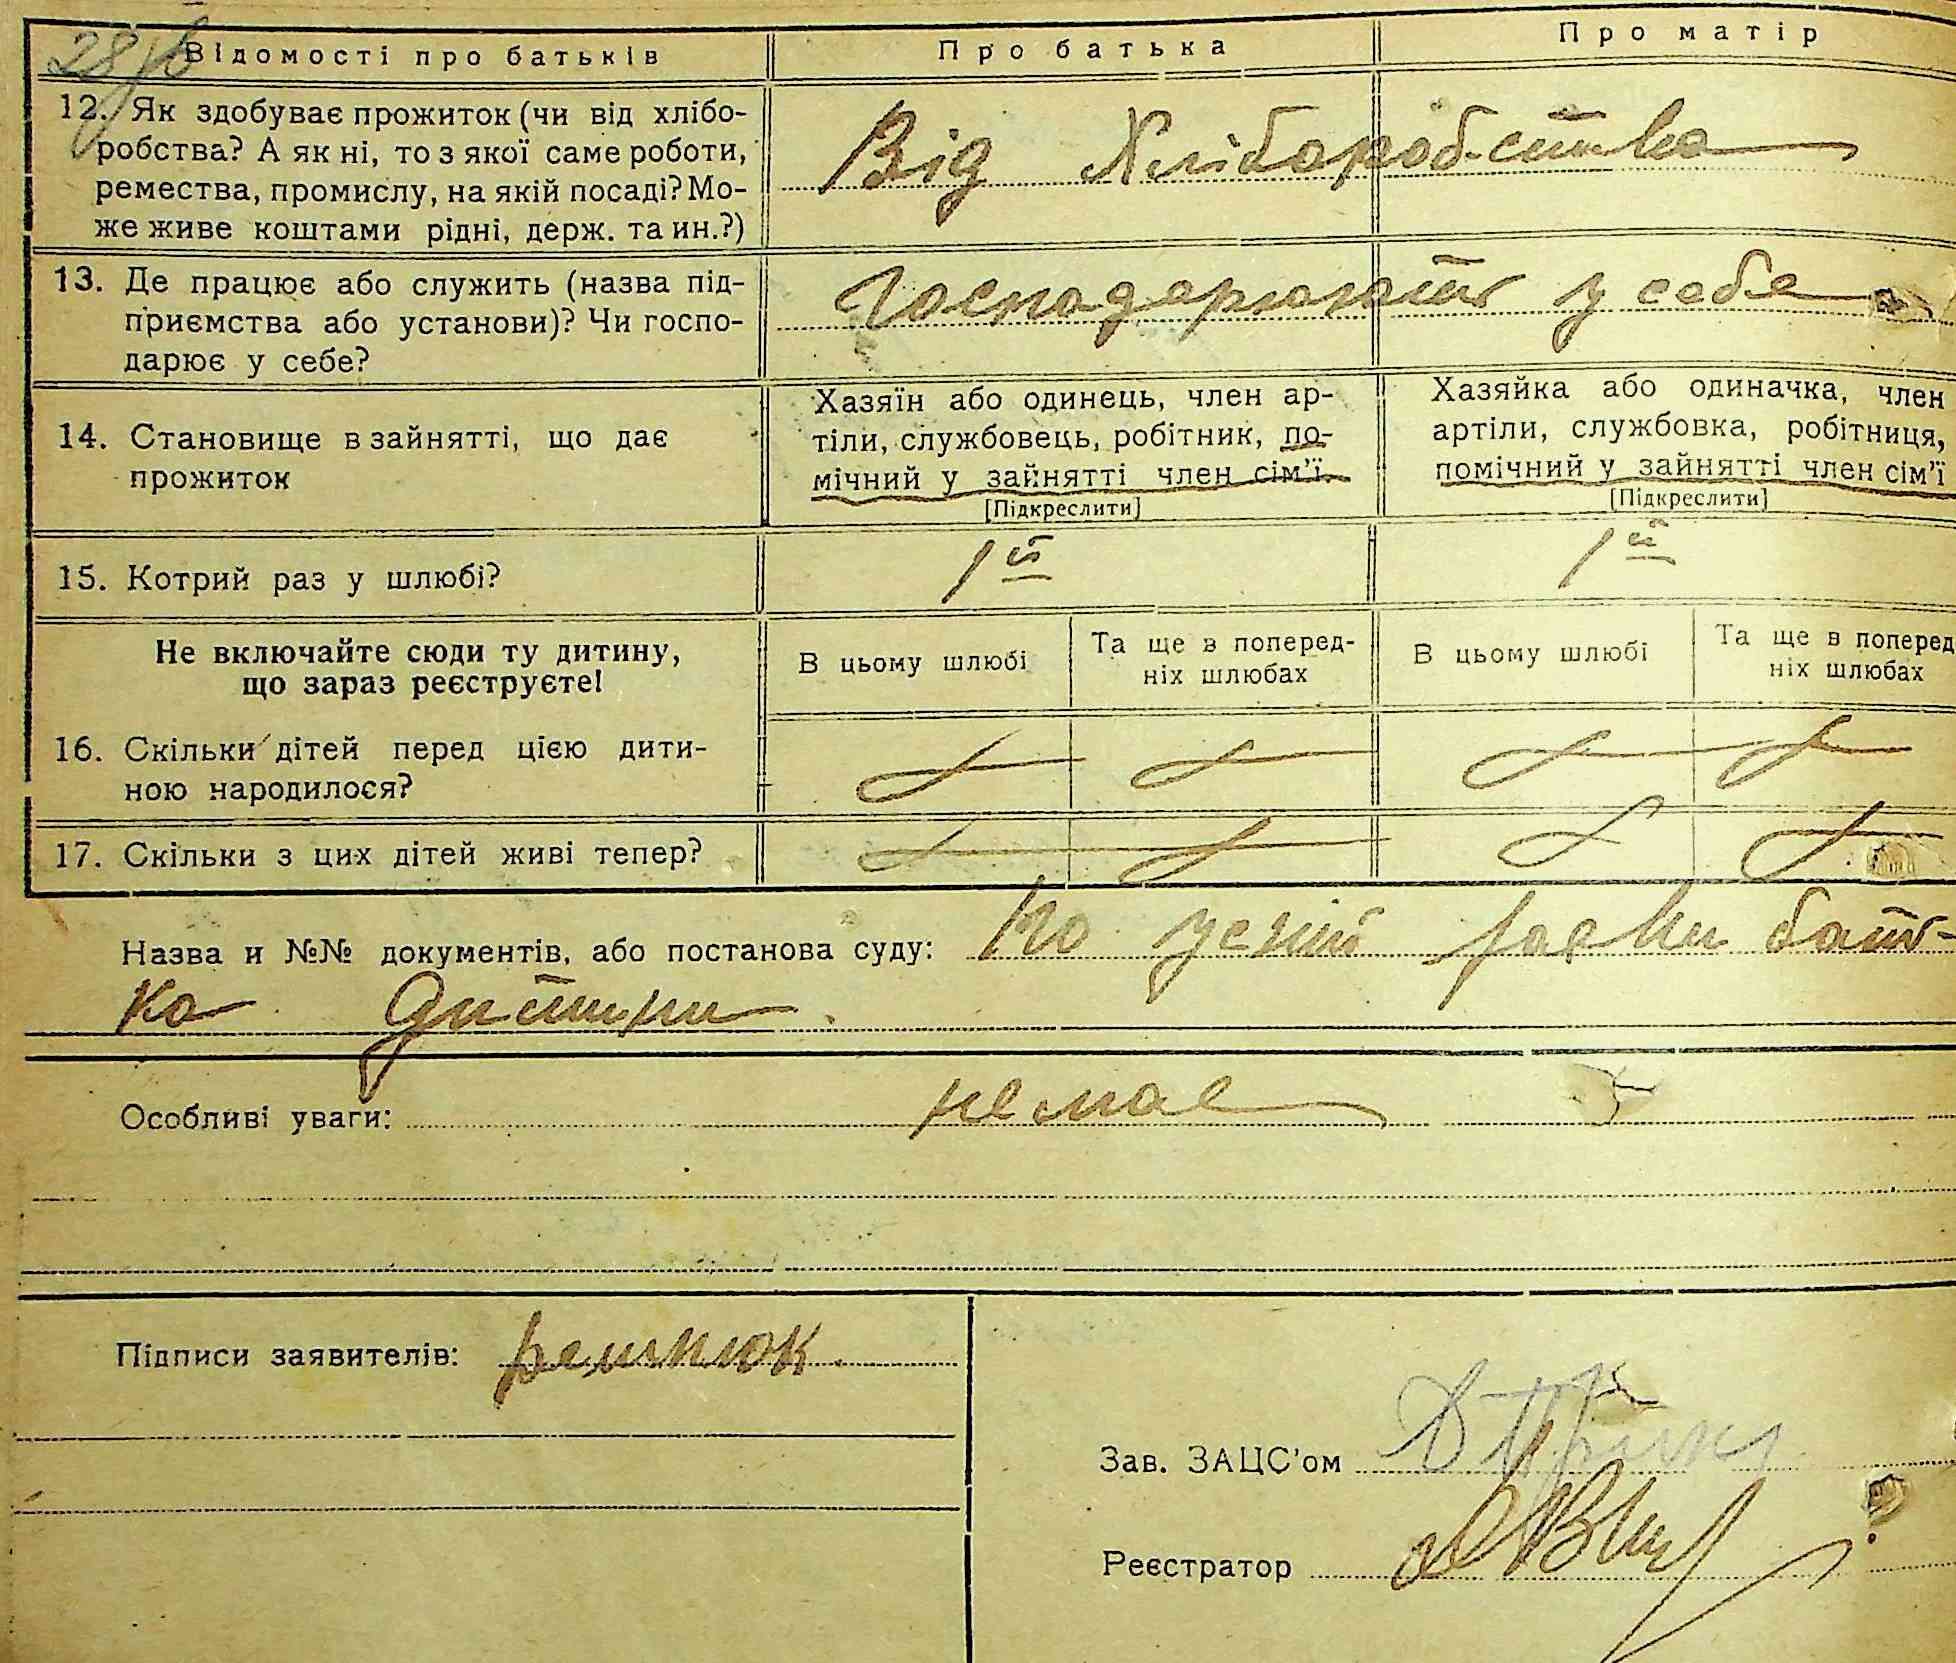 Відомості про батьків
Про батька
Про матір
12. Як здобуває прожиток (чи від хлібо-
робства? А як ні, то з якої саме роботи,
ремества, промислу, на якій посаді? Мо-
же живе коштами рідні, держ. та ин.?)
Від Хліборобства
13. Де працює або служить (назва під-
приємства або установи)? Чи госпо-
дарює у себе?
Господарюють у себе
14. Становище в зайнятті, що дає
прожиток
Хазяїн або одинець, член ар-
тіли, службовець, робітник, по-
мічний у зайнятті член сім'ї.
[Підкреслити]
Хазяйка або одиначка, член
артіли, службовка, робітниця,
помічний у зайнятті член сім'ї
[Підкреслити]
15. Котрий раз у шлюбі?
1й
1й
Не включайте сюди ту дитину,
що зараз реєструєте!
В цьому шлюбі
Та ще в поперед-
ніх шлюбах
В цьому шлюбі
Та ще в поперед
ніх шлюбах
16. Скільки дітей перед цією дити-
ною народилося?
17. Скільки з цих дітей живі тепер?
Назва и №№ документів, або постанова суду: По усній заяви бать-
ка дитини
Особливі уваги: немає
Підписи заявителів:
Зав. ЗАЦС'ом
Реєстратор